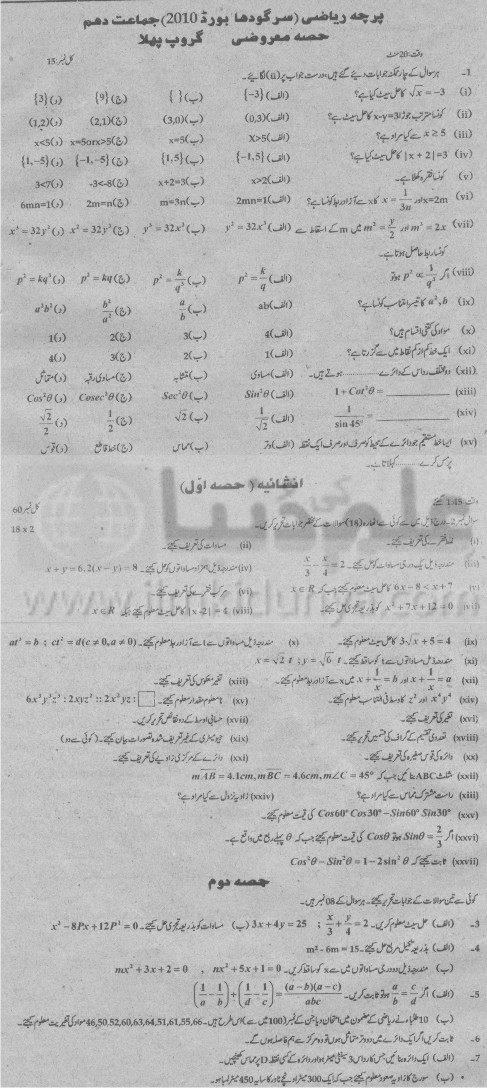 پرچہ ریاضی (سرگودھا بورڈ 2010) جماعت دہم
حصہ معروضی گروپ پہلا
وقت: 20 منٹ کل نمبر: 15
1- ہر سوال کے چار ممکنہ جوابات دیئے گئے ہیں۔ درست جواب پر (ü) لگائیے۔
(i) √x = −3 کا حل سیٹ کیا ہے؟ (الف) {-3} (ب) { } (ج) {9} (د) {3}
(ii) کونسا مرتب جوڑا x-y=3 کا حل سیٹ ہے؟ (الف) (0,3) (ب) (3,0) (ج) (2,1) (د) (1,2)
(iii) x ≥ 5 سے کیا مراد ہے؟ (الف) X>5 (ب) x=5 (ج) x=5orx>5 (د) x<5
(iv) |x + 2|=3 کا حل سیٹ کیا ہے؟ (الف) {-1,5} (ب) {1,5} (ج) {-1,-5} (د) {1,-5}
(v) کونسا فقرہ کھلا ہے۔ (الف) x>2 (ب) x+2=3 (ج) -3<-8 (د) 3<7
(vi) x=2m اور x = 1/3n کا x سے آزاد ربط کونسا ہے؟ (الف) 2mn=1 (ب) m=3n (ج) 2m=n (د) 6mn=1
(vii) m³ = 2x اور m² = y/2 میں m کے اسقاط سے (الف) y² = 32x³ (ب) y³ = 32x² (ج) x² = 32y³ (د) x³ = 32y²
کونسا ربط حاصل ہوتا ہے۔
(viii) اگر p² ∝ 1/q³ ہو تو (الف) p² = k/q (ب) p² = k/q³ (ج) p² = kq (د) p² = kq³
(ix) a², b کا تیسرا تناسب کونسا ہے؟ (الف) ab (ب) a/b (ج) b²/a² (د) a²b²
(x) مواد کی کتنی اقسام ہیں؟ (الف) 4 (ب) 3 (ج) 2 (د) 1
(xi) ایک خط کم از کم نقاط میں سے گزرتا ہے؟ (الف) 1 (ب) 2 (ج) 3 (د) 4
(xii) دو مختلف رداس کے دائرے ........ ہوتے ہیں۔ (الف) مساوی (ب) متشابہ (ج) مساوی رقبہ (د) متماثل
(xiii) 1 + Cot²θ = ________ (الف) Sin²θ (ب) Sec²θ (ج) Cosec²θ (د) Cos²θ
(xiv) 1/sin 45° = ________ (الف) 1/√2 (ب) √2 (ج) 1/2 (د) √2/2
(xv) ایسا خط مستقیم جو دائرے کے محیط کو صرف اور صرف ایک نقطہ (الف) وتر (ب) مماس (ج) خط قاطع (د) قوس
پر مس کرے ........ کہلاتا ہے۔
انشائیہ (حصہ اوّل)
وقت: 1:45 گھنٹے کل نمبر 60
سوال نمبر 2- درج ذیل میں سے کوئی سے اٹھارہ (18) سوالات کے مختصر جوابات تحریر کریں۔ 18 x 2
(i) کی تعریف کیجئے۔ (ii) مساوات کی تعریف کیجئے۔
(iii) مندرجہ ذیل یک درجی مساوات کو حل کیجئے۔ x/3 − x/4 = 2 (iv) مندرجہ ذیل ہمزاد مساواتوں کو حل کیجئے۔ x + y = 6, 2(x − y) = 8
(v) 6x − 8 < x + 7 کا حل سیٹ معلوم کیجئے جب کہ x ∈ R (vi) مرکب کی تعریف کیجئے۔
(vii) x² + 7x + 12 = 0 کو بذریعہ تجزی حل کیجئے۔ (viii) |x -2| = 4 کا حل سیٹ معلوم کیجئے جبکہ x ∈ R
(ix) 3√x + 5 = 4 کا حل سیٹ معلوم کیجئے۔ (x) مندرجہ ذیل مساواتوں سے t سے آزاد ربط معلوم کیجئے۔ at³ = b ; ct² = d(c ≠ 0, a ≠ 0)
(xi) مندرجہ ذیل مساواتوں سے t کو ساقط کیجئے۔ x = √2 t ; y = √6 t
(xii) x + 1/x = a اور x + 1/x = b میں x سے آزاد ربط معلوم کیجئے۔ (xiii) تغیر معکوس کی تعریف کیجئے۔
(xiv) x⁴y⁴ اور z² کا وسط فی التناسب معلوم کیجئے۔ (xv) نامعلوم مقدار معلوم کیجئے۔ 6x³y³z³ : 2xyz² :: 2x²yz : □
(xvi) تغیر کی تعریف کیجئے۔ (xvii) حسابی اوسط کے دو نقائص تحریر کریں۔
(xviii) تعددی تقسیم کے گراف کی قسمیں تحریر کیجئے۔ (xix) جیومیٹری کے غیر تعریف شدہ تصورات بیان کیجئے۔ (کوئی سے دو)
(xx) دائرہ کی قوس صغیرہ کی تعریف کیجئے۔ (xxi) دائرے کے مرکزی زاویے کی تعریف کیجئے۔
(xxii) مثلث ABC بنائیں جب کہ mAB = 4.1cm, mBC = 4.6cm, m∠C = 45°
(xxiii) راست مشترک مماس سے کیا مراد ہے؟ (xxiv) زاویہ نزول سے کیا مراد ہے؟
(xxv) Cos60° Cos30° − Sin60° Sin30° کی قیمت معلوم کیجئے۔
(xxvi) اگر Sinθ = 2/3 ہو تو Cosθ کی قیمت معلوم کیجئے جب کہ θ پہلے ربع میں واقع ہے۔
(xxvii) ثابت کیجئے کہ Cos²θ − Sin²θ = 1 − 2 sin² θ
حصہ دوم
کوئی سے تین سوالات کے جوابات تحریر کیجئے۔ ہر سوال کے 08 نمبر ہیں۔
3- (الف) حل سیٹ معلوم کریں۔ x/3 + y/4 = 2 ; 3x + 4y = 25 (ب) مساوات کو بذریعہ تجزی حل کیجئے۔ x² − 8Px + 12P² = 0
4- (الف) بذریعہ تکمیل مربع حل کیجئے۔ m² - 6m = 15
(ب) مندرجہ ذیل دو درجی مساواتوں میں سے x کو ساقط کریں۔ mx² + 3x + 2 = 0 , nx² + 5x + 1 = 0
5- (الف) اگر a/b = c/d ہو تو ثابت کریں۔ (1/a − 1/b) + (1/d − 1/c) = (a − b)(a − c)/abc
(ب) 10 طلباء نے ریاضی کے مضمون میں امتحان دیا جن کے نمبر (100 میں سے) اس طرح ہیں۔ 46,50,52,60,63,64,51,61,55,66 مواد کی تغیریت معلوم کیجئے۔
6- ثابت کریں اگر ایک دائرے میں دو وتر متماثل ہوں تو وہ مرکز سے ہم فاصلہ ہوں گے۔
7- (الف) ایک دائرہ بنائیں جس کا رداس 3 سینٹی میٹر ہو اور دائرہ کے کسی نقطہ D پر مماس کھینچیں۔
(ب) سورج کا زاویہ صعود معلوم کیجئے جب کہ ایک 300 میٹر اونچے ٹاور کا سایہ 450 میٹر لمبا ہو۔